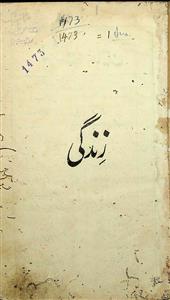 1473
1473 = 1
1473
زندگی